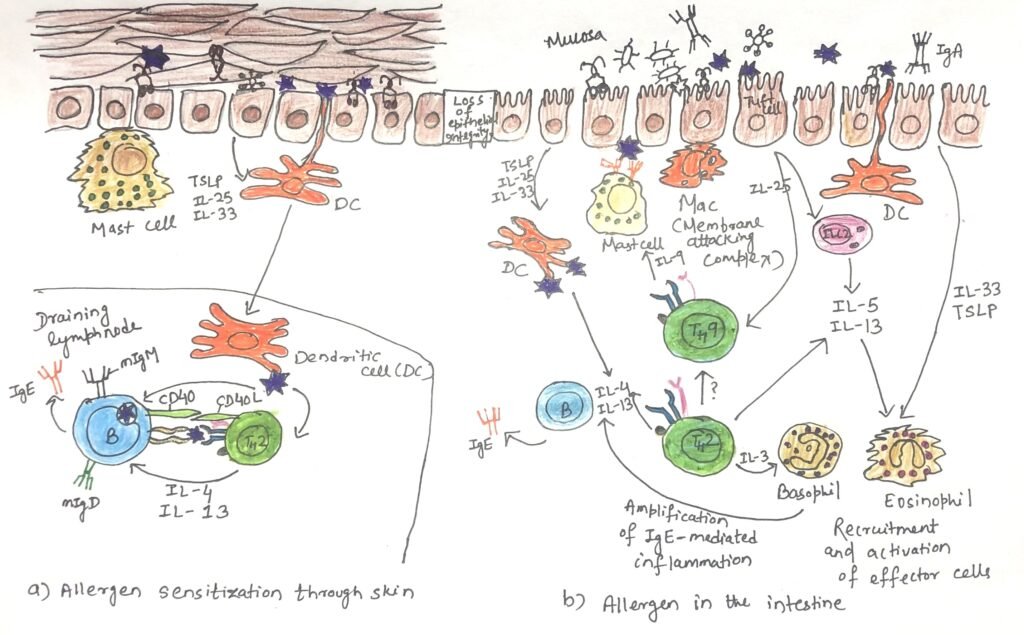 Mast cell
TSLP
IL-25
IL-33
DC
Draining
lymphnode
mIgM
IgE
B
mIgD
CD40
CD40L
TH2
Dendritic
cell (DC)
IL-4
IL-13
a) Allergen sensitization through skin
Loss
of
epithelial
integrity
Mucosa
Tuft
cell
IgA
TSLP
IL-25
IL-33
DC
Mast cell
Mac
(Membrane
attacking
complex)
IL-25
DC
ILC2
IL-9
TH9
IL-5
IL-13
IL-33
TSLP
?
B
IL-4
IL-13
IgE
TH2
IL-3
Basophil
Eosinophil
Amplification
of IgE-mediated
inflammation
Recruitment
and activation
of effector cells
b) Allergen in the intestine